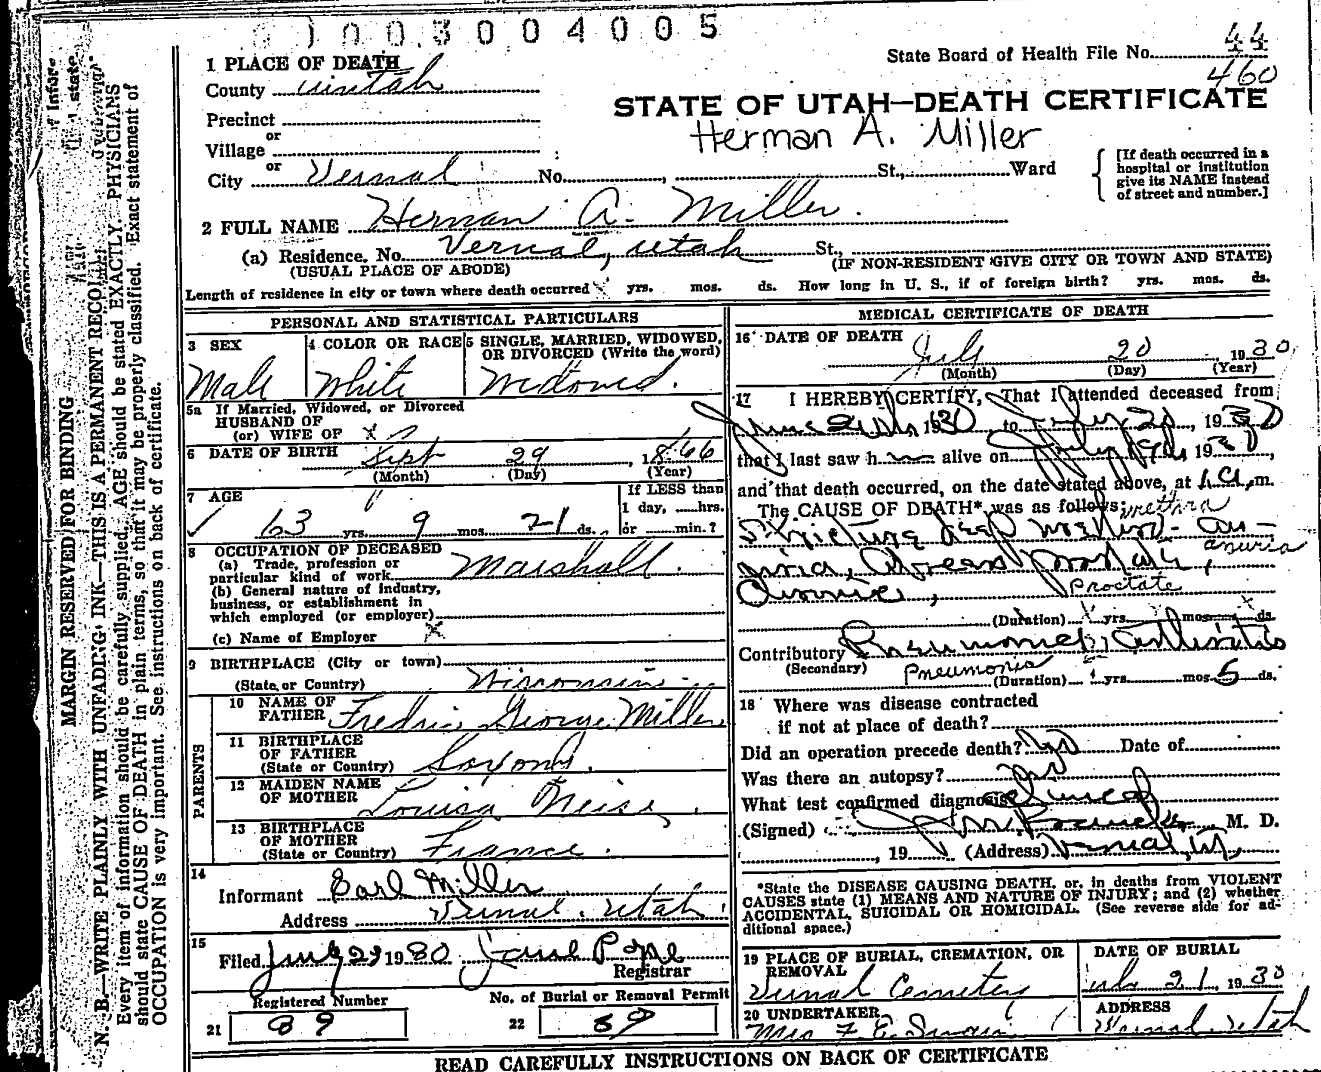 1003004005
State Board of Health File No. 44
460
1 PLACE OF DEATH
County Uintah
STATE OF UTAH—DEATH CERTIFICATE
Precinct
or
Herman A. Miller
Village
or
City Vernal No. , St., Ward
[If death occurred in a
hospital or institution
give its NAME instead
of street and number.]
2 FULL NAME Herman A. Miller.
(a) Residence. No. Vernal, Utah St.,
(USUAL PLACE OF ABODE) (IF NON-RESIDENT GIVE CITY OR TOWN AND STATE)
Length of residence in city or town where death occurred yrs. mos. ds. How long in U. S., if of foreign birth? yrs. mos. ds.
PERSONAL AND STATISTICAL PARTICULARS
3 SEX
Male
4 COLOR OR RACE
White
5 SINGLE, MARRIED, WIDOWED,
OR DIVORCED (Write the word)
Widowed.
5a If Married, Widowed, or Divorced
HUSBAND OF
(or) WIFE OF
6 DATE OF BIRTH Sept 29, 1866
(Month) (Day) (Year)
7 AGE
63 yrs. 9 mos. 21 ds.
If LESS than
1 day, hrs.
or min.?
8 OCCUPATION OF DECEASED
(a) Trade, profession or
particular kind of work Marshall.
(b) General nature of industry,
business, or establishment in
which employed (or employer)
(c) Name of Employer x
9 BIRTHPLACE (City or town)
(State or Country) Wisconsin
PARENTS
10 NAME OF
FATHER Fredric George Miller
11 BIRTHPLACE
OF FATHER
(State or Country) Saxony.
12 MAIDEN NAME
OF MOTHER Louisa
13 BIRTHPLACE
OF MOTHER
(State or Country) France.
14
Informant Earl Miller
Address Vernal, Utah.
15
Filed 1930
Registrar
Registered Number
21 89
No. of Burial or Removal Permit
22 89
MEDICAL CERTIFICATE OF DEATH
16 DATE OF DEATH
July 20, 1930
(Month) (Day) (Year)
17 I HEREBY CERTIFY, That I attended deceased from
1930 to July 20, 1930
that I last saw h alive on July 19th 1930,
and that death occurred, on the date stated above, at 1 a.m.
The CAUSE OF DEATH* was as follows:
urethra
Stricture deep urethra - an-
anuria
uria, prostate,
prostate
(Duration) yrs. mos. ds.
Contributory
(Secondary) Pneumonia
(Duration) yrs. mos. 5 ds.
18 Where was disease contracted
if not at place of death?
Did an operation precede death? no Date of
Was there an autopsy? no
What test confirmed diagnosis? clinical
(Signed) M. D.
, 19 (Address) Vernal, Ut.
*State the DISEASE CAUSING DEATH, or, in deaths from VIOLENT
CAUSES state (1) MEANS AND NATURE OF INJURY; and (2) whether
ACCIDENTAL, SUICIDAL OR HOMICIDAL. (See reverse side for ad-
ditional space.)
19 PLACE OF BURIAL, CREMATION, OR
REMOVAL
Vernal Cemetery
DATE OF BURIAL
July 21, 1930
20 UNDERTAKER
Mrs F. E. Swain
ADDRESS
Vernal, Utah
READ CAREFULLY INSTRUCTIONS ON BACK OF CERTIFICATE
MARGIN RESERVED FOR BINDING
N. B.—WRITE PLAINLY WITH UNFADING INK—THIS IS A PERMANENT RECORD.
Every item of information should be carefully supplied. AGE should be stated EXACTLY. PHYSICIANS
should state CAUSE OF DEATH in plain terms, so that it may be properly classified. Exact statement of
OCCUPATION is very important. See instructions on back of certificate.